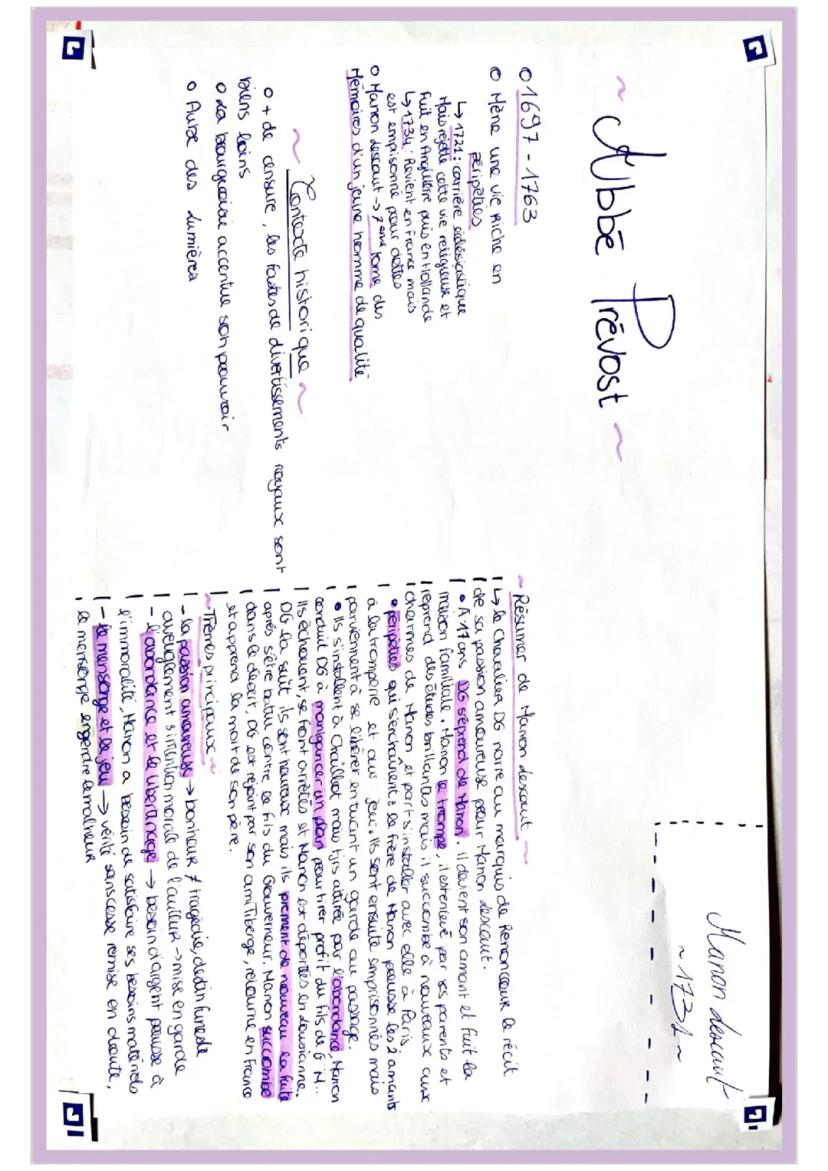 ~ Abbé Prévost ~
Manon Lescaut
~ 1731 ~
o 1697 - 1763
o Mène une vie riche en
péripéties
↳ 1721 : carrière ecclésiastique
Mais rejette cette vie religieuse et
fuit en Angleterre puis en Hollande
↳ 1734 : Revient en France mais
est empisonné pour dettes
o Manon Lescaut -> 7ème tome des
Mémoires d'un jeune homme de qualité
~ Contexte historique ~
o + de censure, les fastes de divertissements royaux sont
biens loins
o La bourgeoisie accentue son pouvoir
o Aube des Lumières
~ Résumer de Manon Lescaut ~
↳ Le Chevalier DG narre au marquis de Renoncour le récit
de sa passion amoureuse pour Manon Lescaut.
• A 17 ans DG s'éprend de Manon. Il devient son amant et fuit la
maison familiale. Manon le trompe, il est enlevé par ses parents et
reprend des études brillantes mais il succombe à nouveaux aux
charmes de Manon et part s'installer avec elle à Paris.
• péripéties qui s'enchainent : le frère de Manon pousse les 2 amants
à la tromperie et au jeu. Ils sont ensuite emprisonnés mais
parviennent à se libérer en tuant un garde au passage.
• Ils s'installent à Chaillot mais tjrs attirée par l'abondance, Manon
conduit DG à manigancer un plan pour tirer profit du fils de G M..
Ils échouent, se font arrêtés et Manon est déportée en Louisianne.
DG la suit, ils sont heureux mais ils prennent de nouveau la fuite
après s'être battu contre le fils du Gouverneur. Manon succombe
dans le désert, DG est rejoint par son ami Tiberge, retourne en France
et apprend la mort de son père.
~ Thèmes principaux ~
- la passion amoureuse -> bonheur ≠ tragédie, destin funeste
aveuglement ≠ intention morale de l'auteur -> mise en garde
- l'abondance et le libertinage -> besoin d'argent pousse à
l'immoralité, Manon a besoin de satisfaire ses besoins matériels
- Le mensonge et le jeu -> vérité sans cesse remise en doute,
le mensonge engendre le malheur